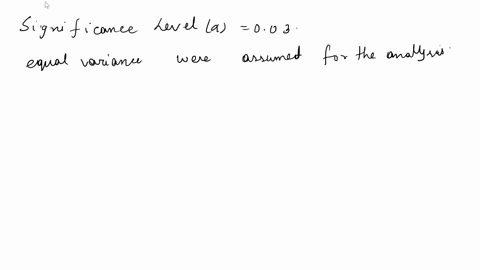 Significance Level (a) = 0.03.
equal variance were assumed for the analysis.